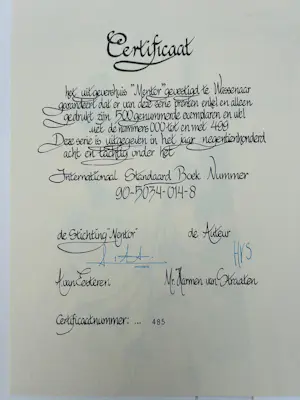 Certificaat
het uitgevershuis "Mentor" gevestigd te Wassenaar
garandeert dat er van deze serie prenten enkel en alleen
gedrukt zijn 500 genummerde exemplaren en wel
met de nummers 000 tot en met 499
Deze serie is uitgegeven in het jaar negentienhonderd
acht en tachtig onder het
Internationaal Standaard Boek Nummer
90-5034-014-8
de Stichting "Mentor" de Auteur
HVS
A van Mr. Harmen van Straaten
Certificaatnummer: ... 485